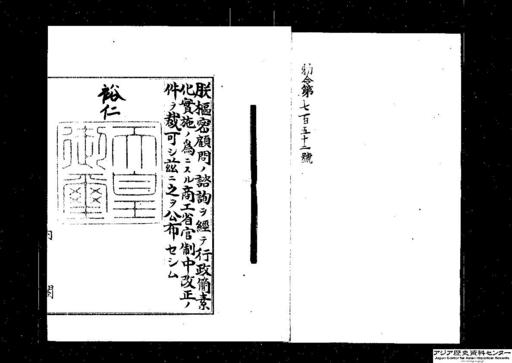 勅令第七百五十一號
朕樞密顧問ノ諮詢ヲ經テ行政簡素
化實施ノ爲ニスル商工省官制中改正ノ
件ヲ裁可シ茲ニ之ヲ公布セシム
裕仁
天皇御璽
内閣
アジア歴史資料センター
Japan Center for Asian Historical Records